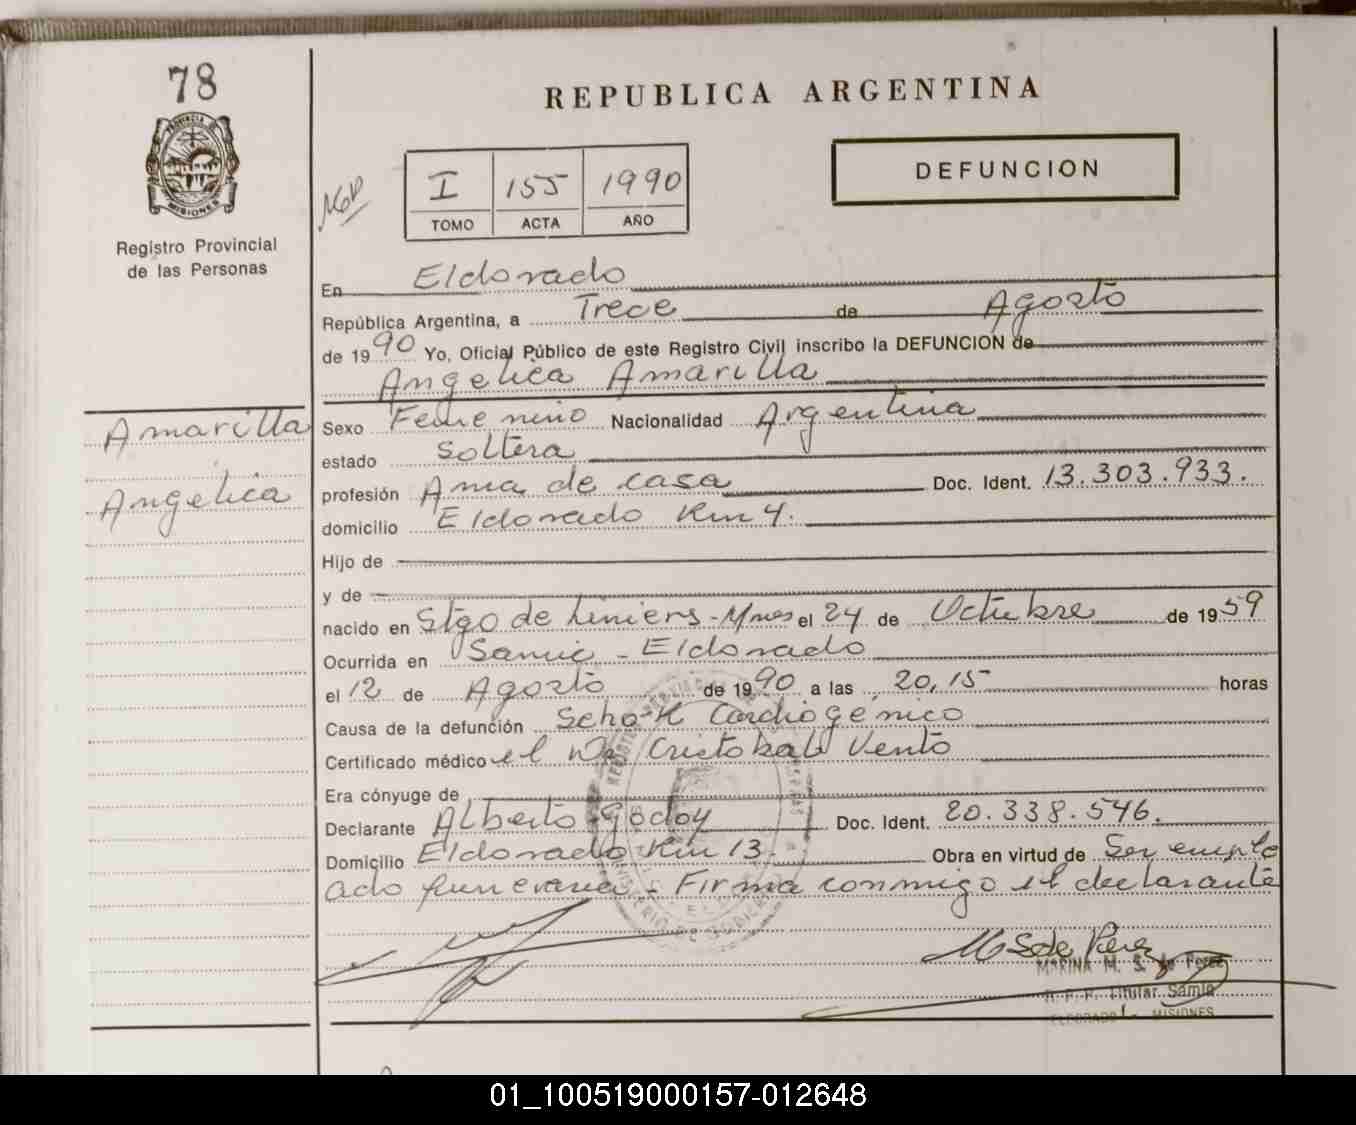 78
REPUBLICA ARGENTINA
PROVINCIA DE MISIONES
Registro Provincial
de las Personas
I 155 1990
TOMO ACTA AÑO
DEFUNCION
En Eldorado
República Argentina, a Trece de Agosto
de 1990 Yo, Oficial Público de este Registro Civil inscribo la DEFUNCION de
Angelica Amarilla
Amarilla
Angelica
Sexo Femenino Nacionalidad Argentina
estado Soltera
profesión Ama de casa Doc. Ident. 13.303.933.
domicilio Eldorado Km 4.
Hijo de
y de
nacido en Stgo de Liniers - Mnes el 24 de Octubre de 1959
Ocurrida en Samic - Eldorado
el 12 de Agosto de 1990 a las 20,15 horas
Causa de la defunción Scho-k Cardiogénico
Certificado médico el Cristobal Vento
Era cónyuge de
Declarante Alberto Godoy Doc. Ident. 20.338.546.
Domicilio Eldorado Km 13. Obra en virtud de Ser emple
ado funeraria - Firma conmigo el declarante
M S de Perez
MARINA M. S. de Perez
Titular Samic
ELDORADO - MISIONES
01_100519000157-012648